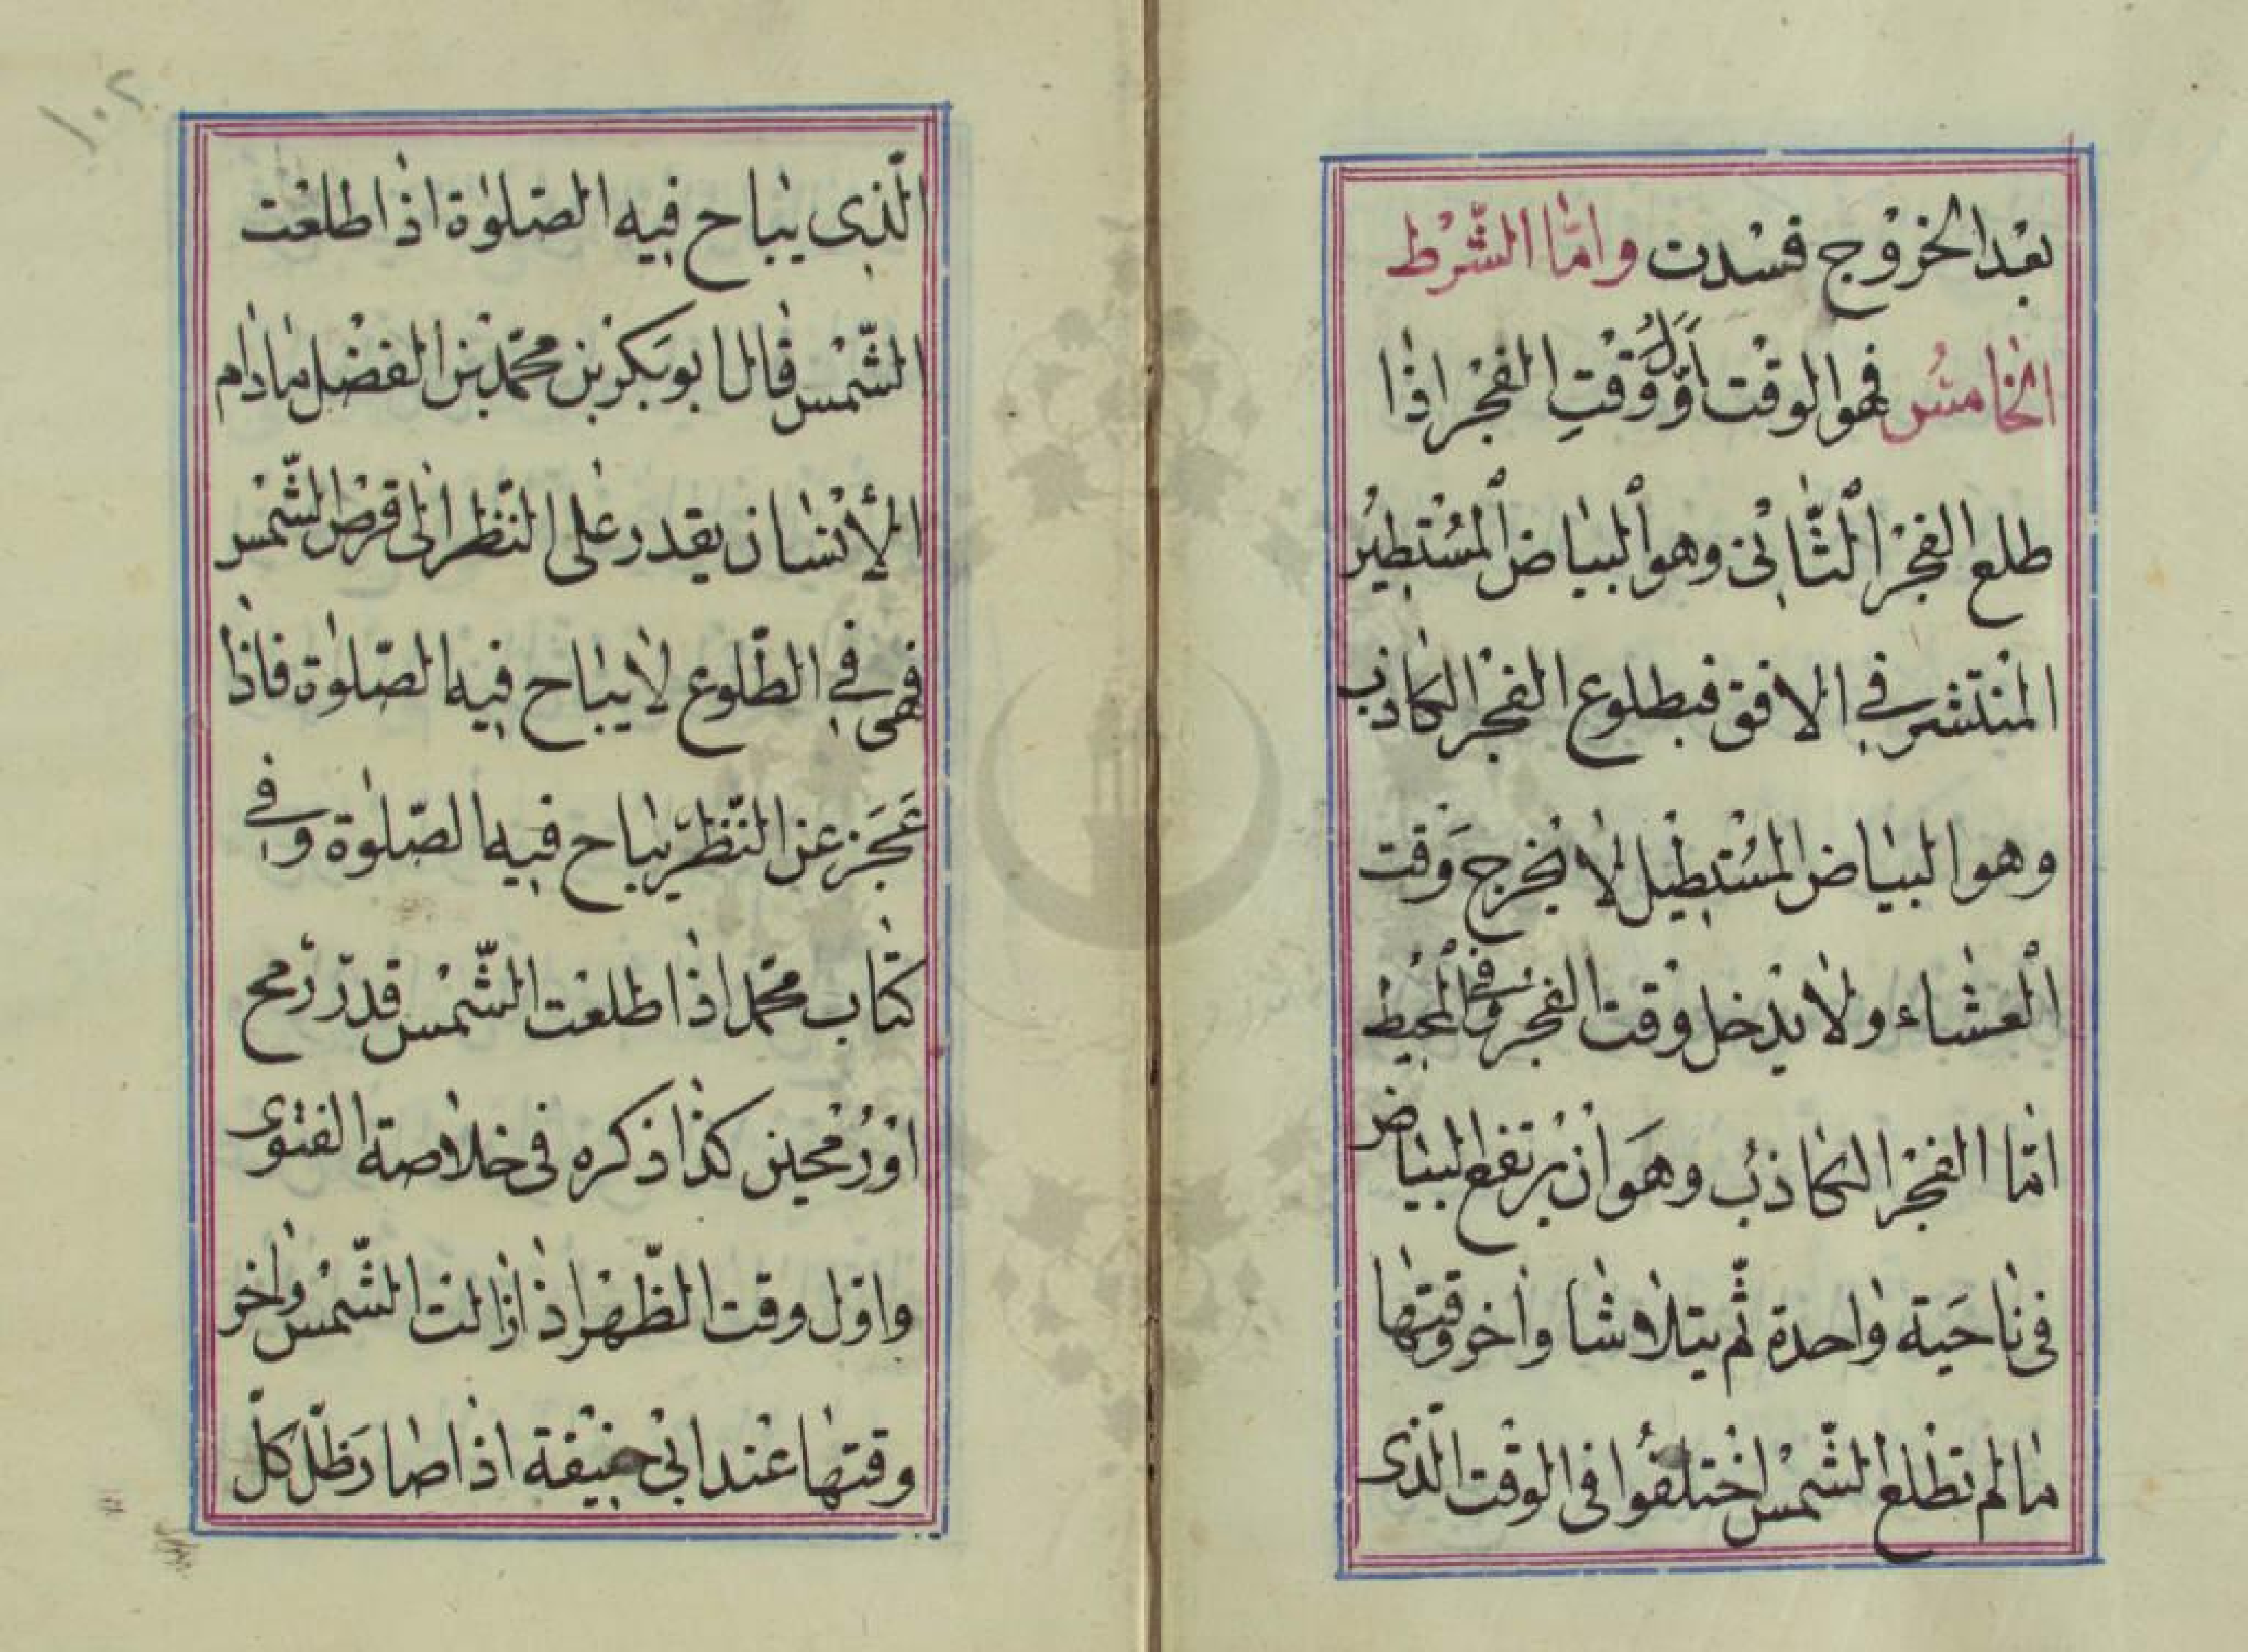 بعد الخروج فسدت واما الشرط
الخامس فهو الوقت اوّل وقتِ الفجر اذا
طلع الفجر الثانى وهو البياض المستطير
المنتشر فى الافق فبطلوع الفجر الكاذب
وهو البياض المستطيل لا يخرج وقت
العشاء ولا يدخل وقت الفجر وفى المحيط
امّا الفجر الكاذب وهو ان يرتفع البياض
فى ناحية واحدة ثم يتلاشا واخر وقتها
ما لم تطلع الشمس اختلفوا فى الوقت الّذى
١٠٢
الّذى يباح فيه الصّلوة اذا طلعت
الشّمس قال ابو بكر بن محمّد بن الفضل ما دام
الأنسان يقدر على النّظر الى قرص الشّمس
فهى فى الطّلوع لا يباح فيه الصّلوة فاذا
عَجَز عن النّظر يباح فيه الصّلوة وفى
كتاب محمّد اذا طلعت الشّمس قدر رمح
او رمحين كذا ذكره فى خلاصة الفتوى
واوّل وقت الظّهر اذا زالت الشّمس واخر
وقتها عند ابى حنيفة اذا صار ظلّ كلّ